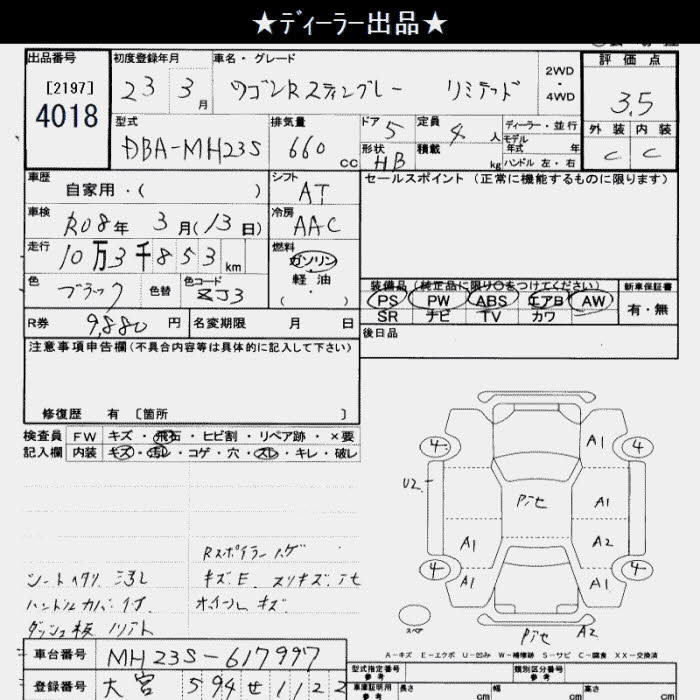 ★ディーラー出品★
出品番号 初度登録年月 車名・グレード 2WD・4WD 評価点
[2197] 23 3月 ワゴンRスティングレー リミテッド 3.5
4018 外装 内装
型式 排気量 ドア 5 定員 4人 ディーラー・並行 C C
DBA-MH23S 660cc 形状 HB 積載 kg モデル年式 年
ハンドル 左・右
車歴 自家用・( ) シフト AT セールスポイント (正常に機能するものに限ります)
車検 R08年 3月(13日) 冷房 AAC
走行 10万3千853km 燃料 ガソリン
軽油
( ・ )
色 ブラック 色替 色コード ZJ3 装備品(純正品に限り○をつけてください) 新車保証書
PS PW ABS エアB AW 有・無
SR ナビ TV カワ
R券 9,880円 名変期限 月 日 後日品
注意事項申告欄(不具合内容等は具体的に記入して下さい)
修復歴 有 〔箇所 〕
検査員 FW キズ・飛石・ヒビ割・リペア跡・×要
記入欄 内装 キズ・汚レ・コゲ・穴・スレ・キレ・破レ
A1
4 4
U2
A1
A1 A2
4 4
A1 A1
スペア
A2
Rスポイラーハゲ
シートヘタリ キズE.スリキズ
ハンドルカバー ホイールキズ
ダッシュ板
A-キズ E-エクボ U-凹み W-補修跡 S-サビ C-腐食 XX-交換済
車台番号 MH23S-617997 型式指定番号 類別区分番号
参考 参考
登録番号 大宮 594 せ 1122 車庫証明用 参考 長さ cm 幅 cm 高さ cm